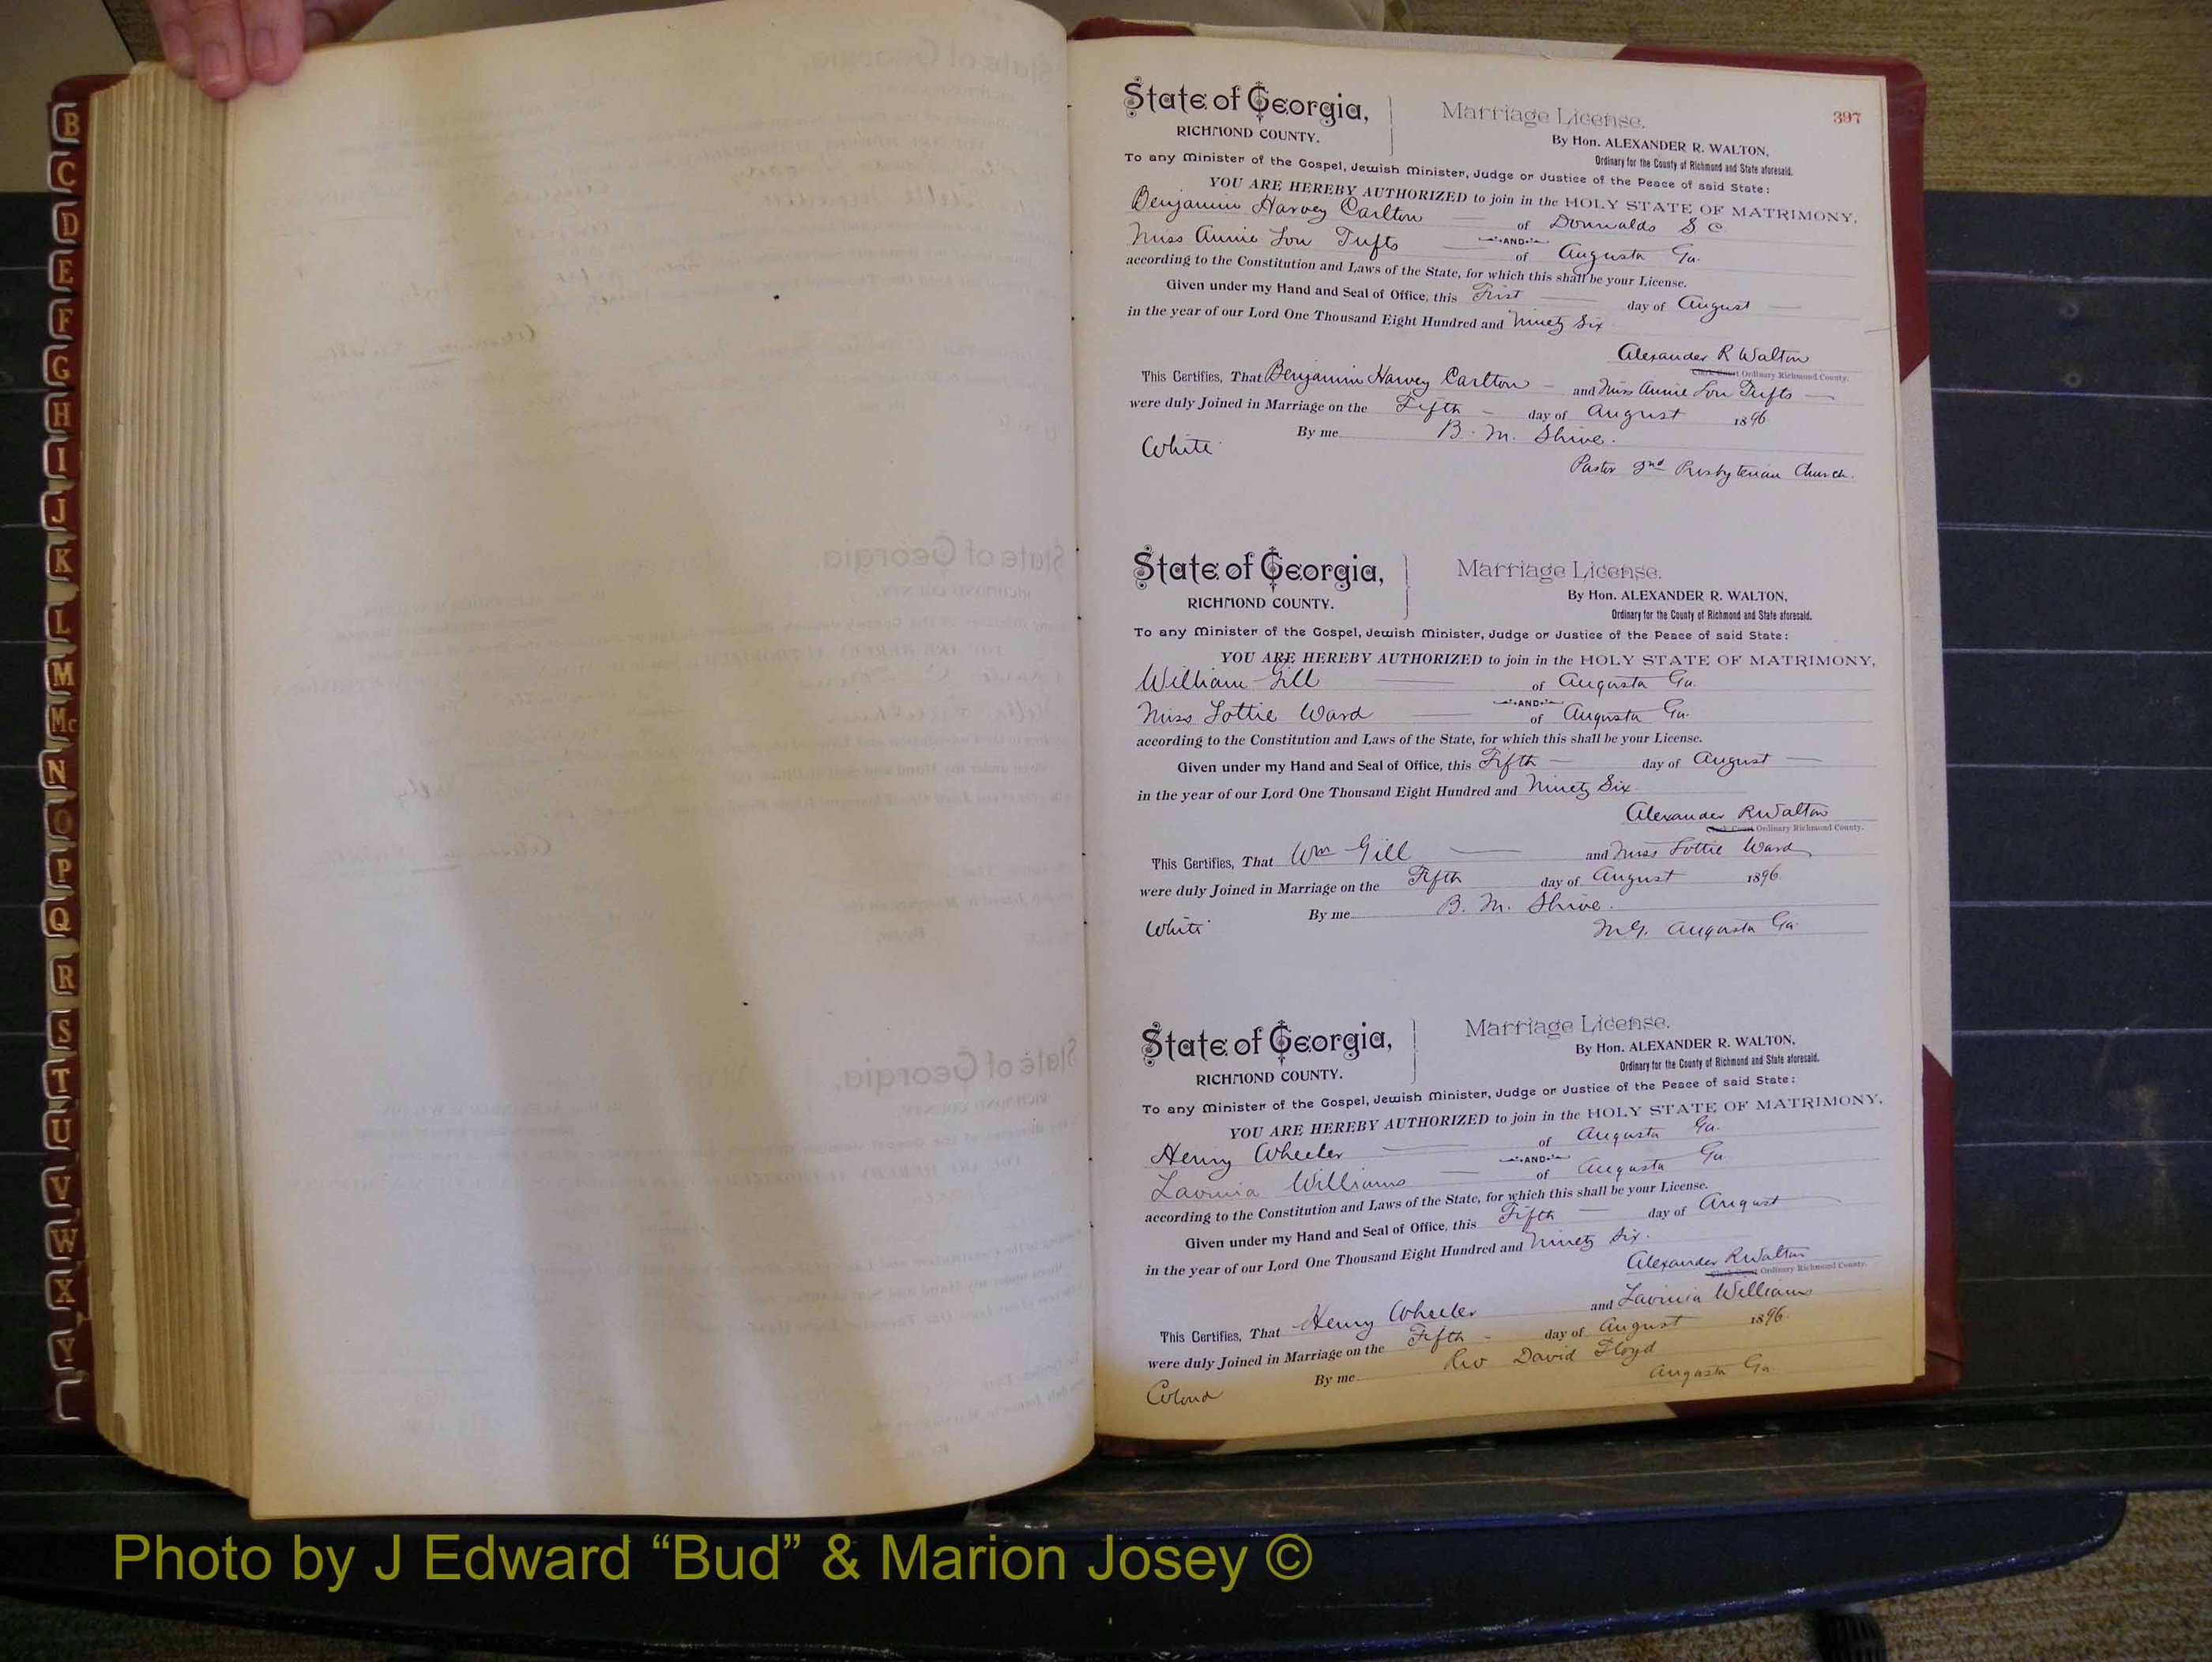 B
C
D
E
F
G
H
I
J
K
L
M
Mc
N
O
P
Q
R
S
T
U
V
W
X
Y
397
State of Georgia,
RICHMOND COUNTY.
Marriage License.
By Hon. ALEXANDER R. WALTON,
Ordinary for the County of Richmond and State aforesaid.
To any Minister of the Gospel, Jewish Minister, Judge or Justice of the Peace of said State:
YOU ARE HEREBY AUTHORIZED to join in the HOLY STATE OF MATRIMONY,
Benjamin Harvey Carlton — of Donnalds S C
AND
Miss Annie Lou Tufts — of Augusta Ga.
according to the Constitution and Laws of the State, for which this shall be your License.
Given under my Hand and Seal of Office, this First — day of August —
in the year of our Lord One Thousand Eight Hundred and Ninety Six
Alexander R Walton
Clerk Court Ordinary Richmond County.
This Certifies, That Benjamin Harvey Carlton — and Miss Annie Lou Tufts —
were duly Joined in Marriage on the Fifth — day of August 1896
By me B. M. Shive.
White
Pastor 2nd Presbyterian Church.
State of Georgia,
RICHMOND COUNTY.
Marriage License.
By Hon. ALEXANDER R. WALTON,
Ordinary for the County of Richmond and State aforesaid.
To any Minister of the Gospel, Jewish Minister, Judge or Justice of the Peace of said State:
YOU ARE HEREBY AUTHORIZED to join in the HOLY STATE OF MATRIMONY,
William Gill — of Augusta Ga.
AND
Miss Lottie Ward — of Augusta Ga.
according to the Constitution and Laws of the State, for which this shall be your License.
Given under my Hand and Seal of Office, this Fifth — day of August —
in the year of our Lord One Thousand Eight Hundred and Ninety Six
Alexander R Walton
Clerk Court Ordinary Richmond County.
This Certifies, That Wm Gill — and Miss Lottie Ward
were duly Joined in Marriage on the Fifth day of August 1896
By me B. M. Shive.
White
M.G. Augusta Ga
State of Georgia,
RICHMOND COUNTY.
Marriage License.
By Hon. ALEXANDER R. WALTON,
Ordinary for the County of Richmond and State aforesaid.
To any Minister of the Gospel, Jewish Minister, Judge or Justice of the Peace of said State:
YOU ARE HEREBY AUTHORIZED to join in the HOLY STATE OF MATRIMONY,
Henry Wheeler — of Augusta Ga.
AND
Lavinia Williams — of Augusta Ga
according to the Constitution and Laws of the State, for which this shall be your License.
Given under my Hand and Seal of Office, this Fifth — day of August
in the year of our Lord One Thousand Eight Hundred and Ninety Six.
Alexander R Walton
Clerk Court Ordinary Richmond County.
This Certifies, That Henry Wheeler and Lavinia Williams
were duly Joined in Marriage on the Fifth — day of August 1896
By me Rev David Floyd
Colored
Augusta Ga.
Photo by J Edward “Bud” & Marion Josey ©